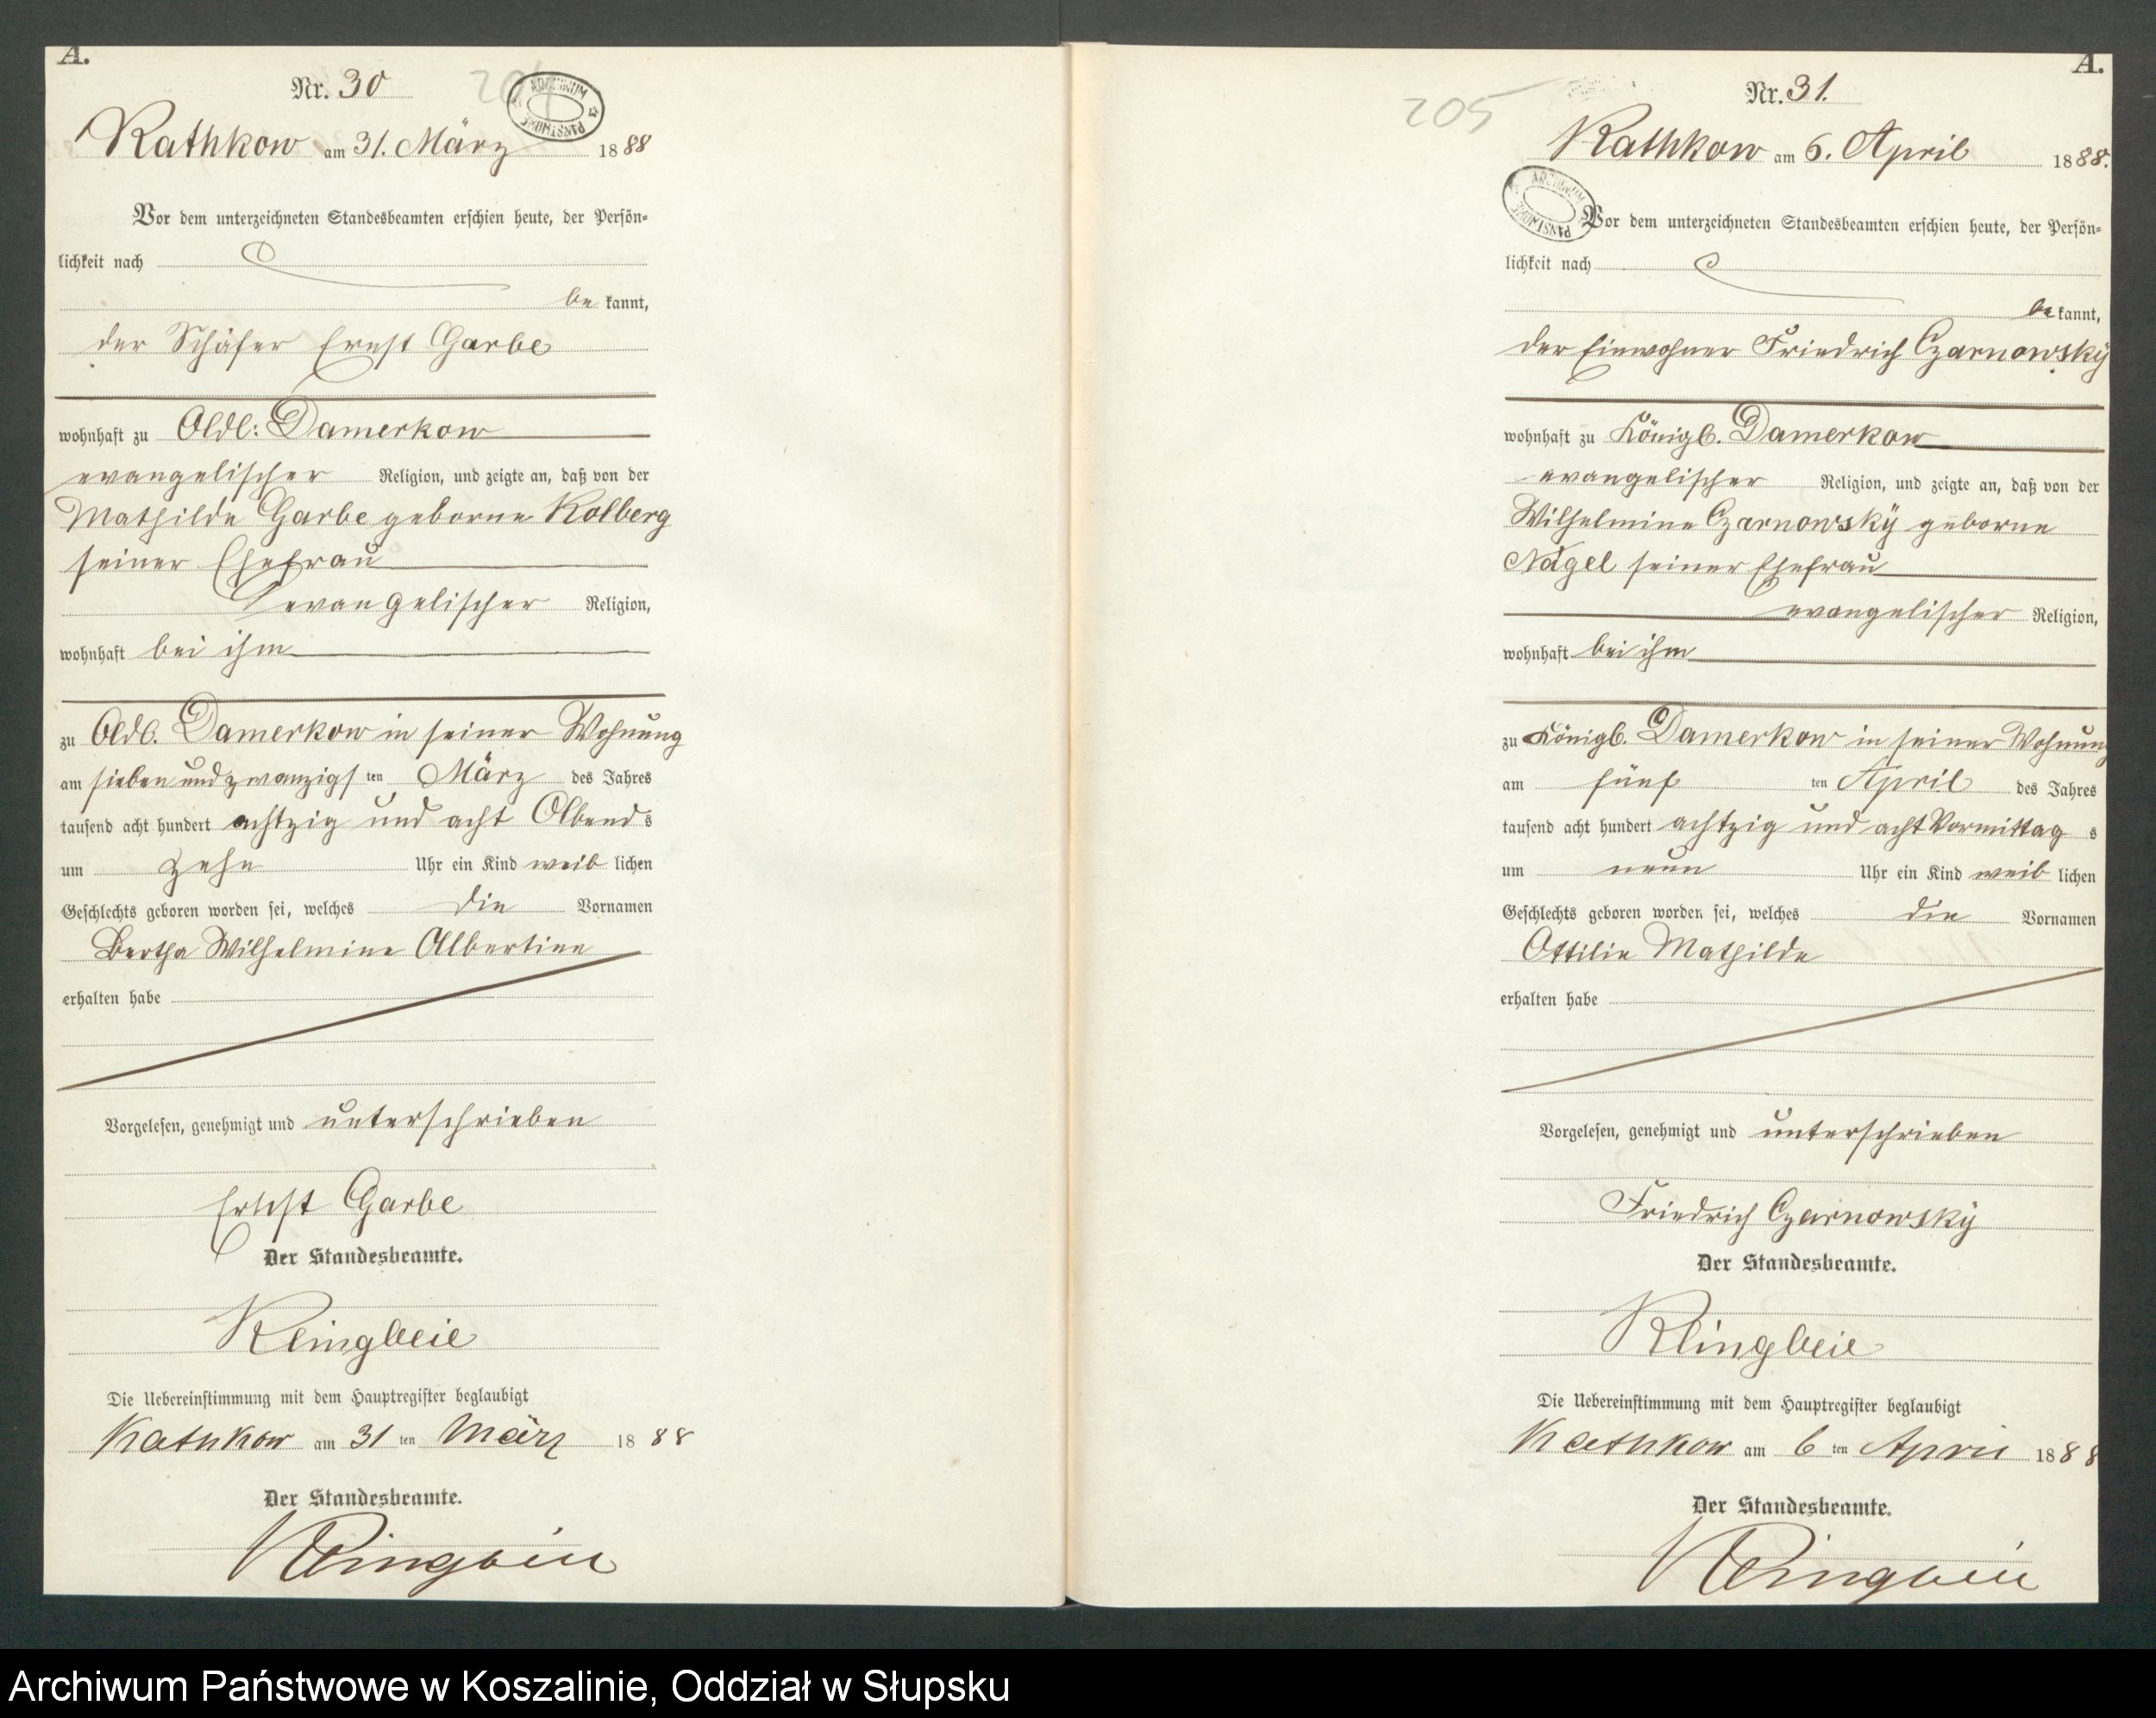 A.
Nr. 30
ARCHIWUM
PAŃSTWOWE
Rathkow am 31. März 1888
Vor dem unterzeichneten Standesbeamten erschien heute, der Persön-
lichkeit nach
be kannt,
der Schäfer Ernst Garbe
wohnhaft zu Adl: Damerkow
evangelischer Religion, und zeigte an, daß von der
Mathilde Garbe geborne Kolberg
seiner Ehefrau
evangelischer Religion,
wohnhaft bei ihm
zu Adl. Damerkow in seiner Wohnung
am siebenundzwanzigsten März des Jahres
tausend acht hundert achtzig und acht Abends
um zehn Uhr ein Kind weiblichen
Geschlechts geboren worden sei, welches die Vornamen
Bertha Wilhelmine Albertine
erhalten habe
Vorgelesen, genehmigt und unterschrieben
Ernst Garbe
Der Standesbeamte.
Klingbeil
Die Uebereinstimmung mit dem Hauptregister beglaubigt
Rathkow am 31 ten März 1888
Der Standesbeamte.
Klingbeil
A.
Nr. 31.
205
Rathkow am 6. April 1888.
ARCHIWUM
PAŃSTWOWE
Vor dem unterzeichneten Standesbeamten erschien heute, der Persön-
lichkeit nach
be kannt,
der Einwohner Friedrich Czarnowsky
wohnhaft zu Königl. Damerkow
evangelischer Religion, und zeigte an, daß von der
Wilhelmine Czarnowsky geborne
Nagel seiner Ehefrau
evangelischer Religion,
wohnhaft bei ihm
zu Königl. Damerkow in seiner Wohnung
am fünf ten April des Jahres
tausend acht hundert achtzig und acht Vormittags
um neun Uhr ein Kind weiblichen
Geschlechts geboren worden sei, welches die Vornamen
Ottilie Mathilde
erhalten habe
Vorgelesen, genehmigt und unterschrieben
Friedrich Czarnowsky
Der Standesbeamte.
Klingbeil
Die Uebereinstimmung mit dem Hauptregister beglaubigt
Rathkow am 6 ten April 1888
Der Standesbeamte.
Klingbeil
Archiwum Państwowe w Koszalinie, Oddział w Słupsku